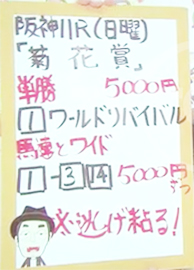 阪神11R(日曜)
『菊花賞』
単勝 5000円
1 ワールドリバイバル
馬連とワイド
1-3 14 5000円
ずつ
必逃げ粘る!